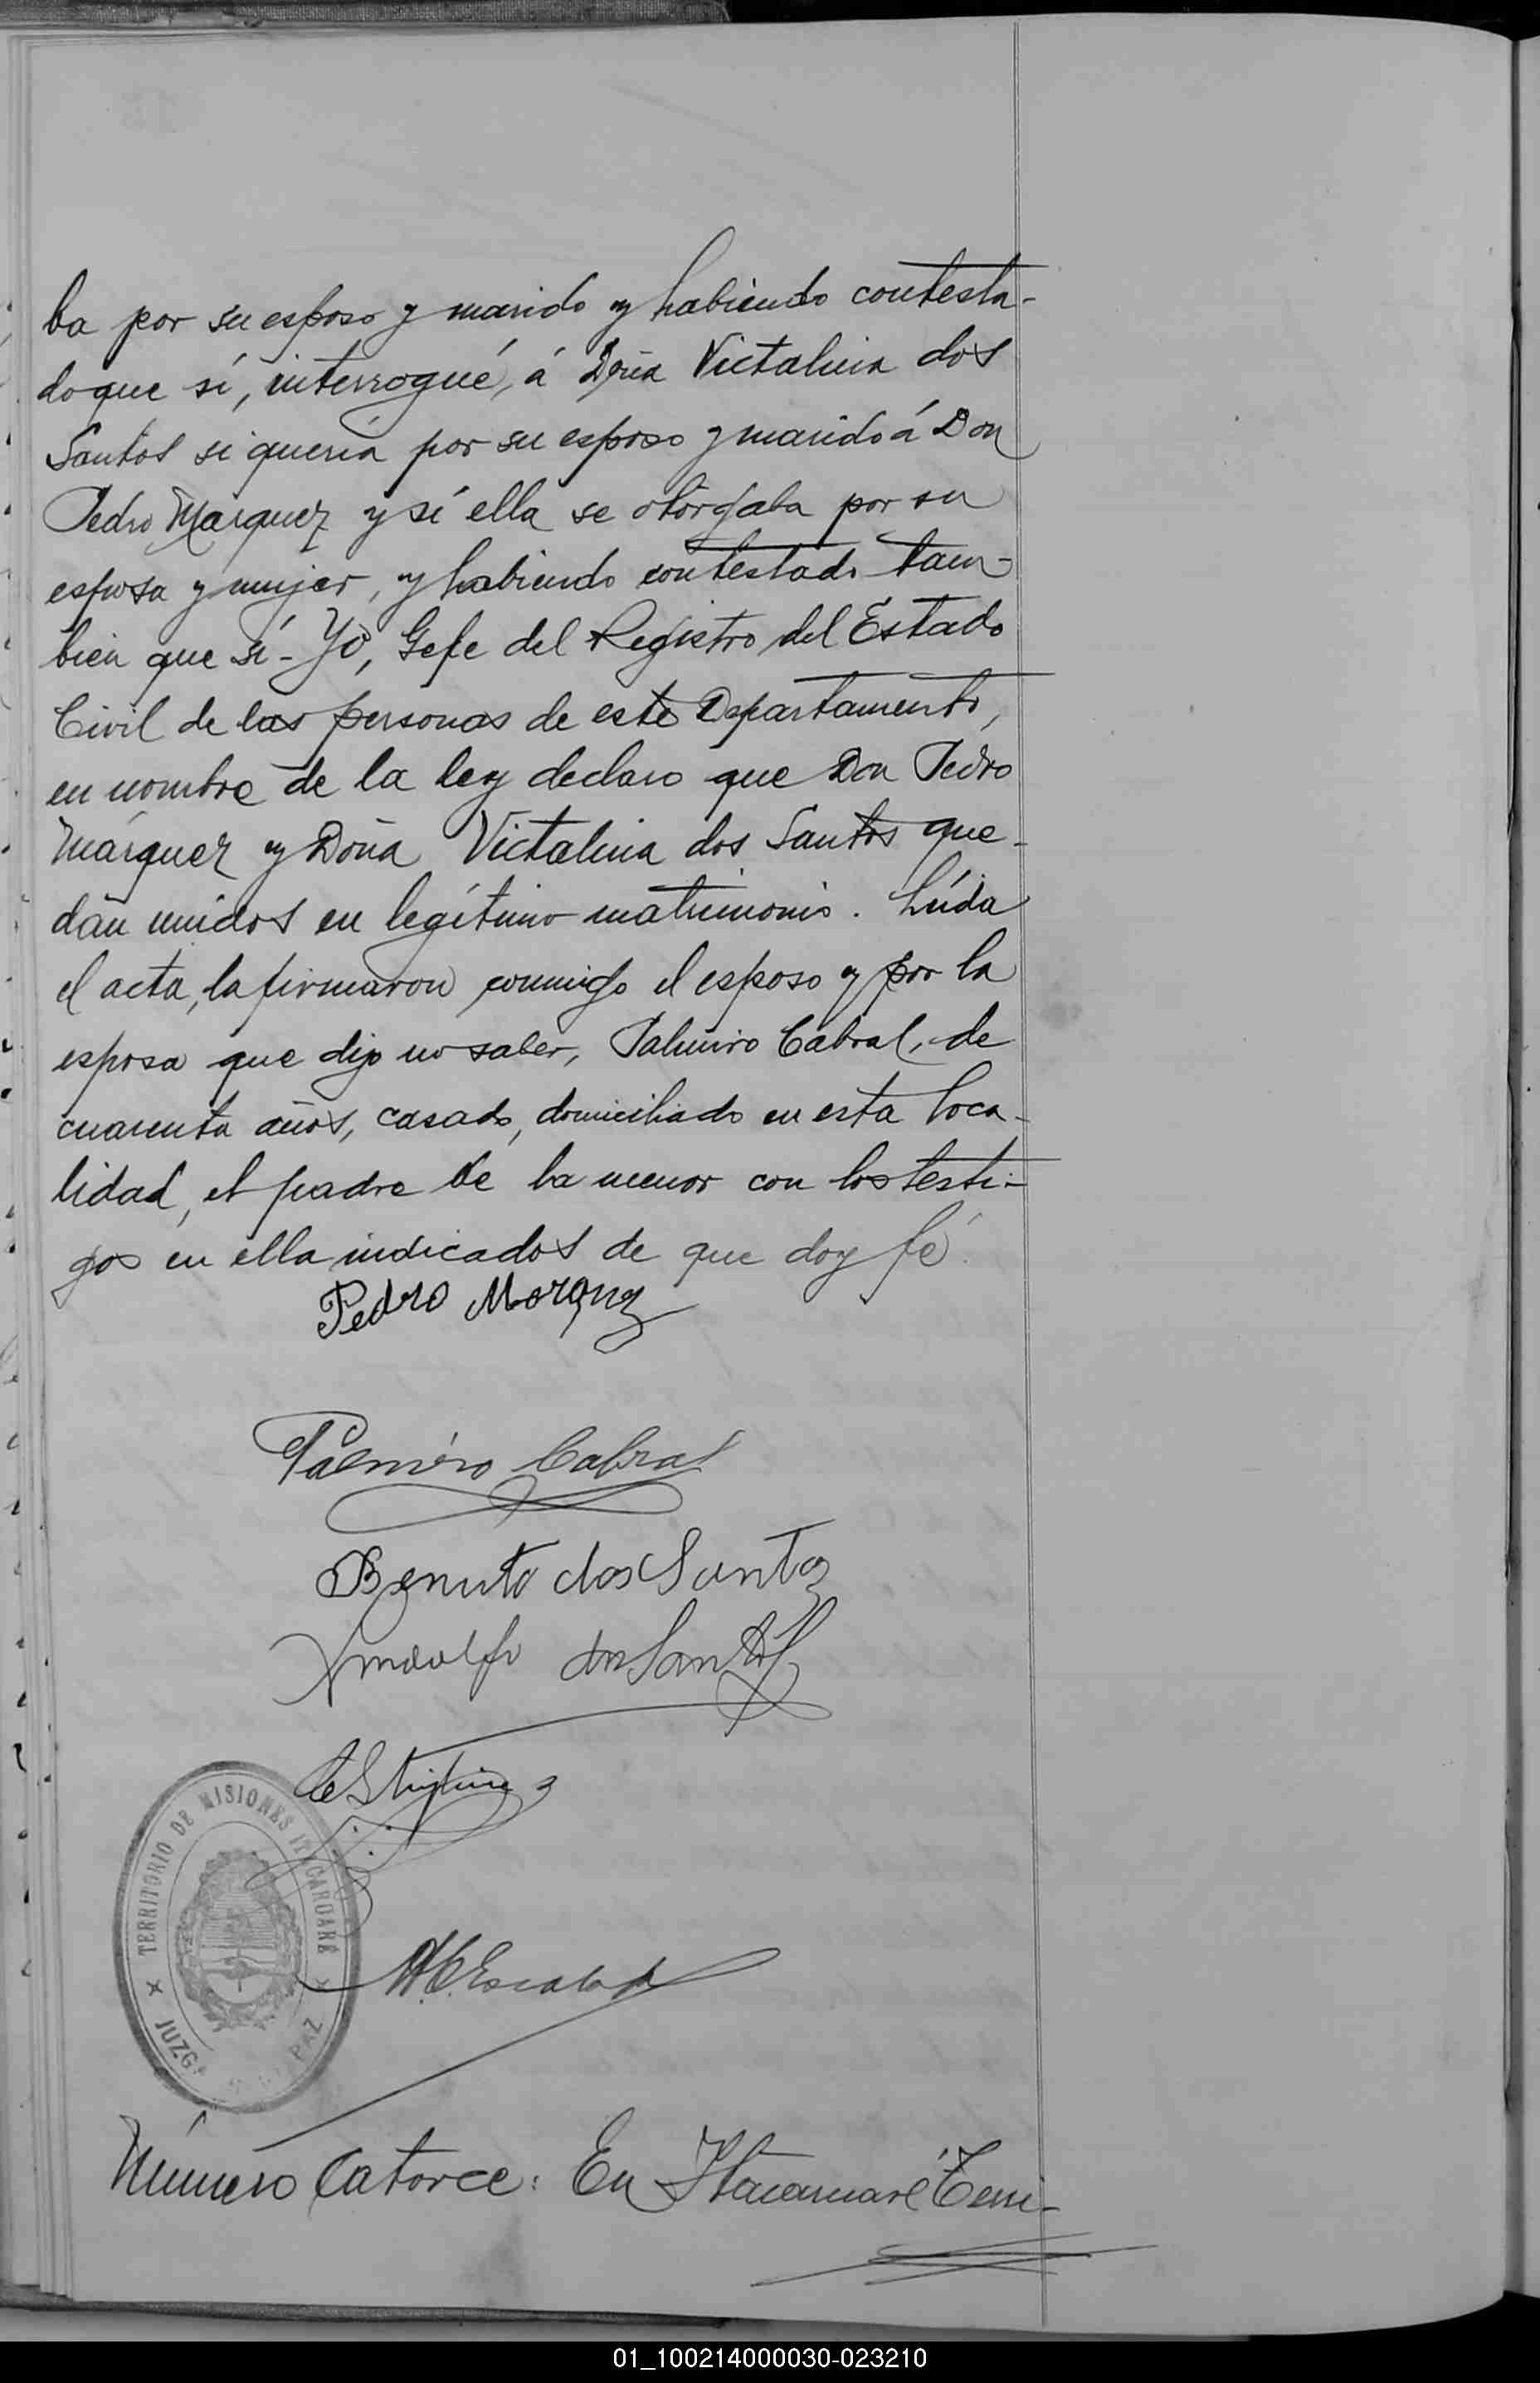 ba por su esposo y marido y habiendo contesta-
do que sí, interrogué, á Doña Victalina dos
Santos si quería por su esposo y marido á Don
Pedro Marquez y sí ella se otorgaba por su
esposa y mujer, y habiendo contestado tam-
bien que sí - Yo, Gefe del Registro del Estado
Civil de las personas de este Departamento,
en nombre de la ley declaro que Don Pedro
Márquez y Doña Victalina dos Santos que-
dan unidos en legítimo matrimonio. Leída
el acta, la firmaron conmigo el esposo y por la
esposa que dijo no saber, Palmiro Cabral, de
cuarenta años, casado, domiciliado en esta loca-
lidad, el padre de la menor con los testi-
gos en ella indicados de que doy fé.
Pedro Marquez
Palmiro Cabral
Benuto dos Santos
dos Santos
TERRITORIO DE MISIONES ITACARUARÉ
JUZGADO DE PAZ
Número Catorce: En Itacaruaré Terri-
01_100214000030-023210